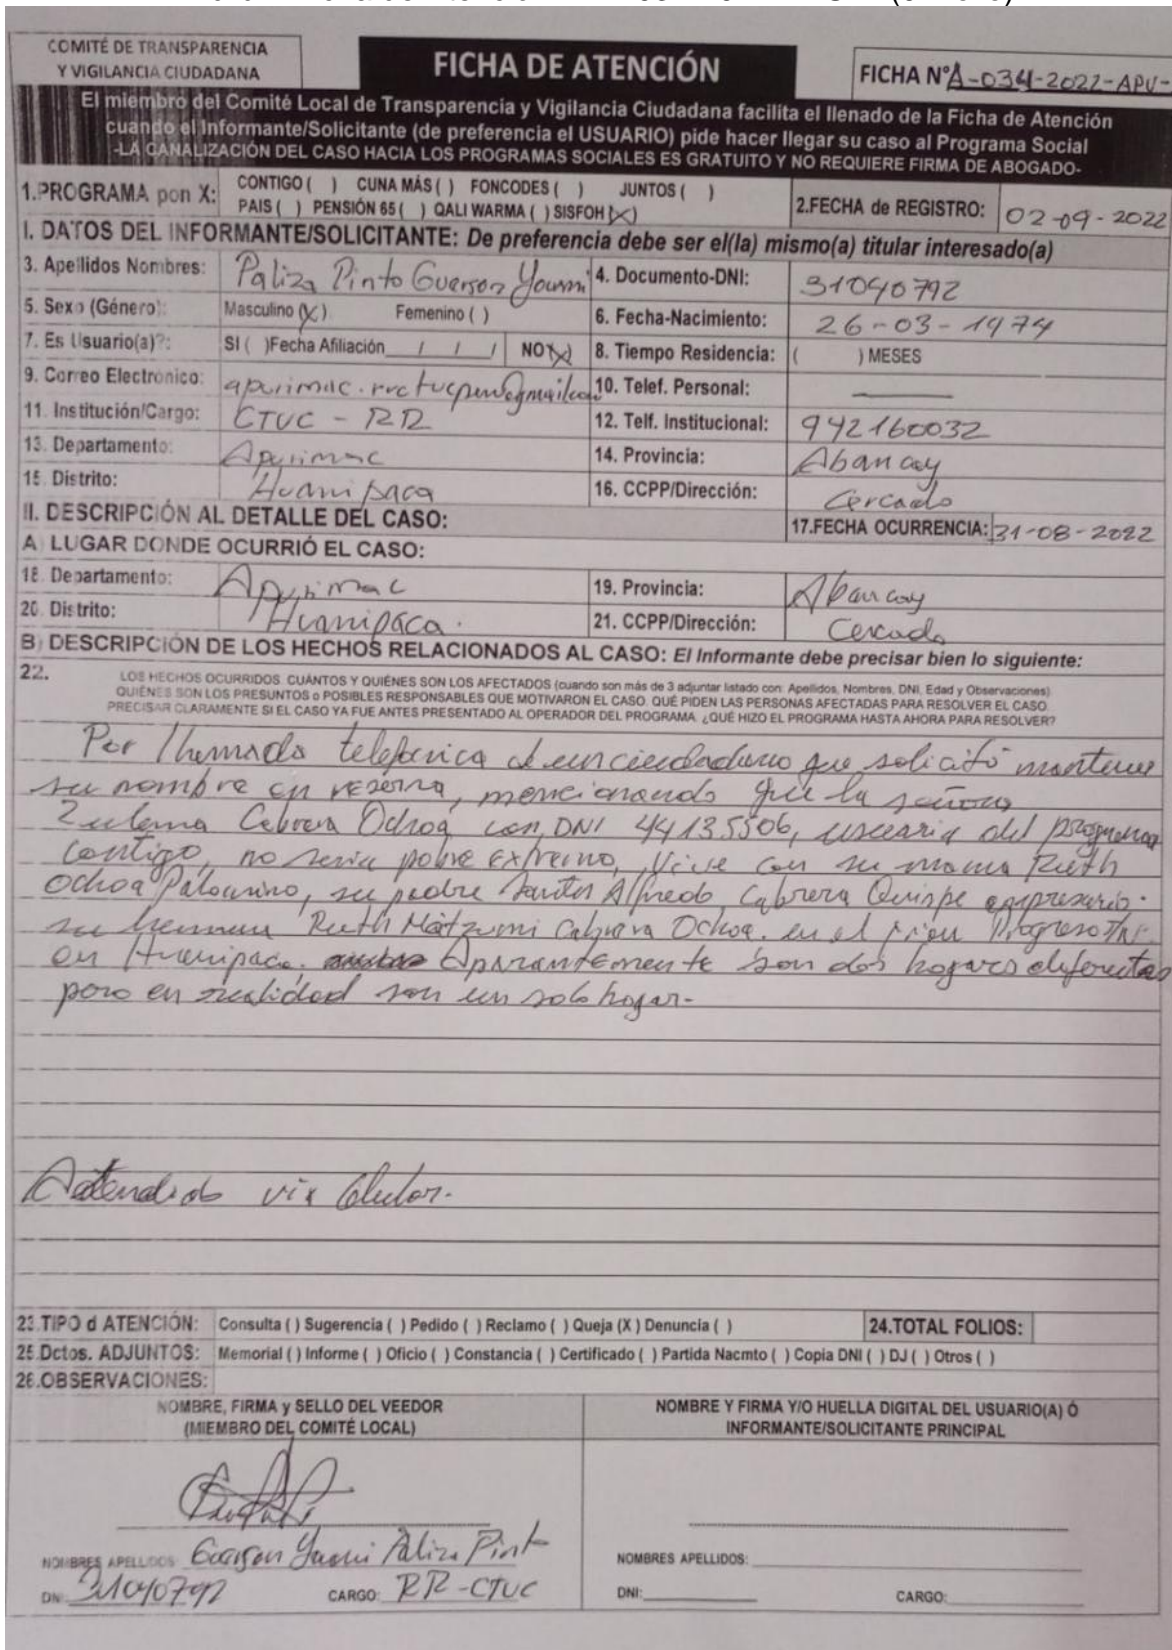 COMITÉ DE TRANSPARENCIA
Y VIGILANCIA CIUDADANA
FICHA DE ATENCIÓN
FICHA N° A-034-2022-APU-
El miembro del Comité Local de Transparencia y Vigilancia Ciudadana facilita el llenado de la Ficha de Atención
cuando el Informante/Solicitante (de preferencia el USUARIO) pide hacer llegar su caso al Programa Social
-LA CANALIZACIÓN DEL CASO HACIA LOS PROGRAMAS SOCIALES ES GRATUITO Y NO REQUIERE FIRMA DE ABOGADO-
1.PROGRAMA pon X: CONTIGO ( ) CUNA MÁS ( ) FONCODES ( ) JUNTOS ( )
PAIS ( ) PENSIÓN 65 ( ) QALI WARMA ( ) SISFOH (X)
2.FECHA de REGISTRO: 02-09-2022
I. DATOS DEL INFORMANTE/SOLICITANTE: De preferencia debe ser el(la) mismo(a) titular interesado(a)
3. Apellidos Nombres: Paliza Pinto Guerson 4. Documento-DNI: 31040792
5. Sexo (Género): Masculino (X) Femenino ( ) 6. Fecha-Nacimiento: 26-03-1974
7. Es Usuario(a)?: SI ( ) Fecha Afiliación / / NO (X) 8. Tiempo Residencia: ( ) MESES
9. Correo Electronico: 10. Telef. Personal: —
11. Institución/Cargo: CTVC - RR 12. Telf. Institucional: 942160032
13. Departamento: Apurimac 14. Provincia: Abancay
15. Distrito: Huanipaca 16. CCPP/Dirección: Cercado
II. DESCRIPCIÓN AL DETALLE DEL CASO: 17.FECHA OCURRENCIA: 31-08-2022
A) LUGAR DONDE OCURRIÓ EL CASO:
18. Departamento: Apurimac 19. Provincia: Abancay
20. Distrito: Huanipaca. 21. CCPP/Dirección: Cercado
B) DESCRIPCIÓN DE LOS HECHOS RELACIONADOS AL CASO: El Informante debe precisar bien lo siguiente:
22. LOS HECHOS OCURRIDOS. CUÁNTOS Y QUIÉNES SON LOS AFECTADOS (cuando son más de 3 adjuntar listado con: Apellidos, Nombres, DNI, Edad y Observaciones)
QUIÉNES SON LOS PRESUNTOS o POSIBLES RESPONSABLES QUE MOTIVARON EL CASO. QUÉ PIDEN LAS PERSONAS AFECTADAS PARA RESOLVER EL CASO.
PRECISAR CLARAMENTE SI EL CASO YA FUE ANTES PRESENTADO AL OPERADOR DEL PROGRAMA. ¿QUÉ HIZO EL PROGRAMA HASTA AHORA PARA RESOLVER?
Por llamada telefonica de un ciudadano que solicitó mantener
su nombre en reserva, mencionando que la señora
Zulema Cabrera Ochoa con DNI 44135506, usuaria del programa
contigo, no seria pobre extremo, vive con su mama Ruth
Ochoa Palomino, su padre Santos Alfredo Cabrera Quispe empresario.
su hermana Ruth Matzumi Cabrera Ochoa. en el
en Huanipaca. Aparantemente son dos hogares diferentes
pero en realidad son un solo hogar.-
Atendido via Celular.
23.TIPO d ATENCIÓN: Consulta ( ) Sugerencia ( ) Pedido ( ) Reclamo ( ) Queja (X) Denuncia ( ) 24.TOTAL FOLIOS:
25.Dctos. ADJUNTOS: Memorial ( ) Informe ( ) Oficio ( ) Constancia ( ) Certificado ( ) Partida Nacmto ( ) Copia DNI ( ) DJ ( ) Otros ( )
26.OBSERVACIONES:
NOMBRE, FIRMA y SELLO DEL VEEDOR
(MIEMBRO DEL COMITÉ LOCAL)
NOMBRES APELLIDOS: Guerson Paliza Pinto
DNI: 31040792 CARGO: RR-CTVC
NOMBRE Y FIRMA Y/O HUELLA DIGITAL DEL USUARIO(A) Ó
INFORMANTE/SOLICITANTE PRINCIPAL
NOMBRES APELLIDOS:
DNI: CARGO: